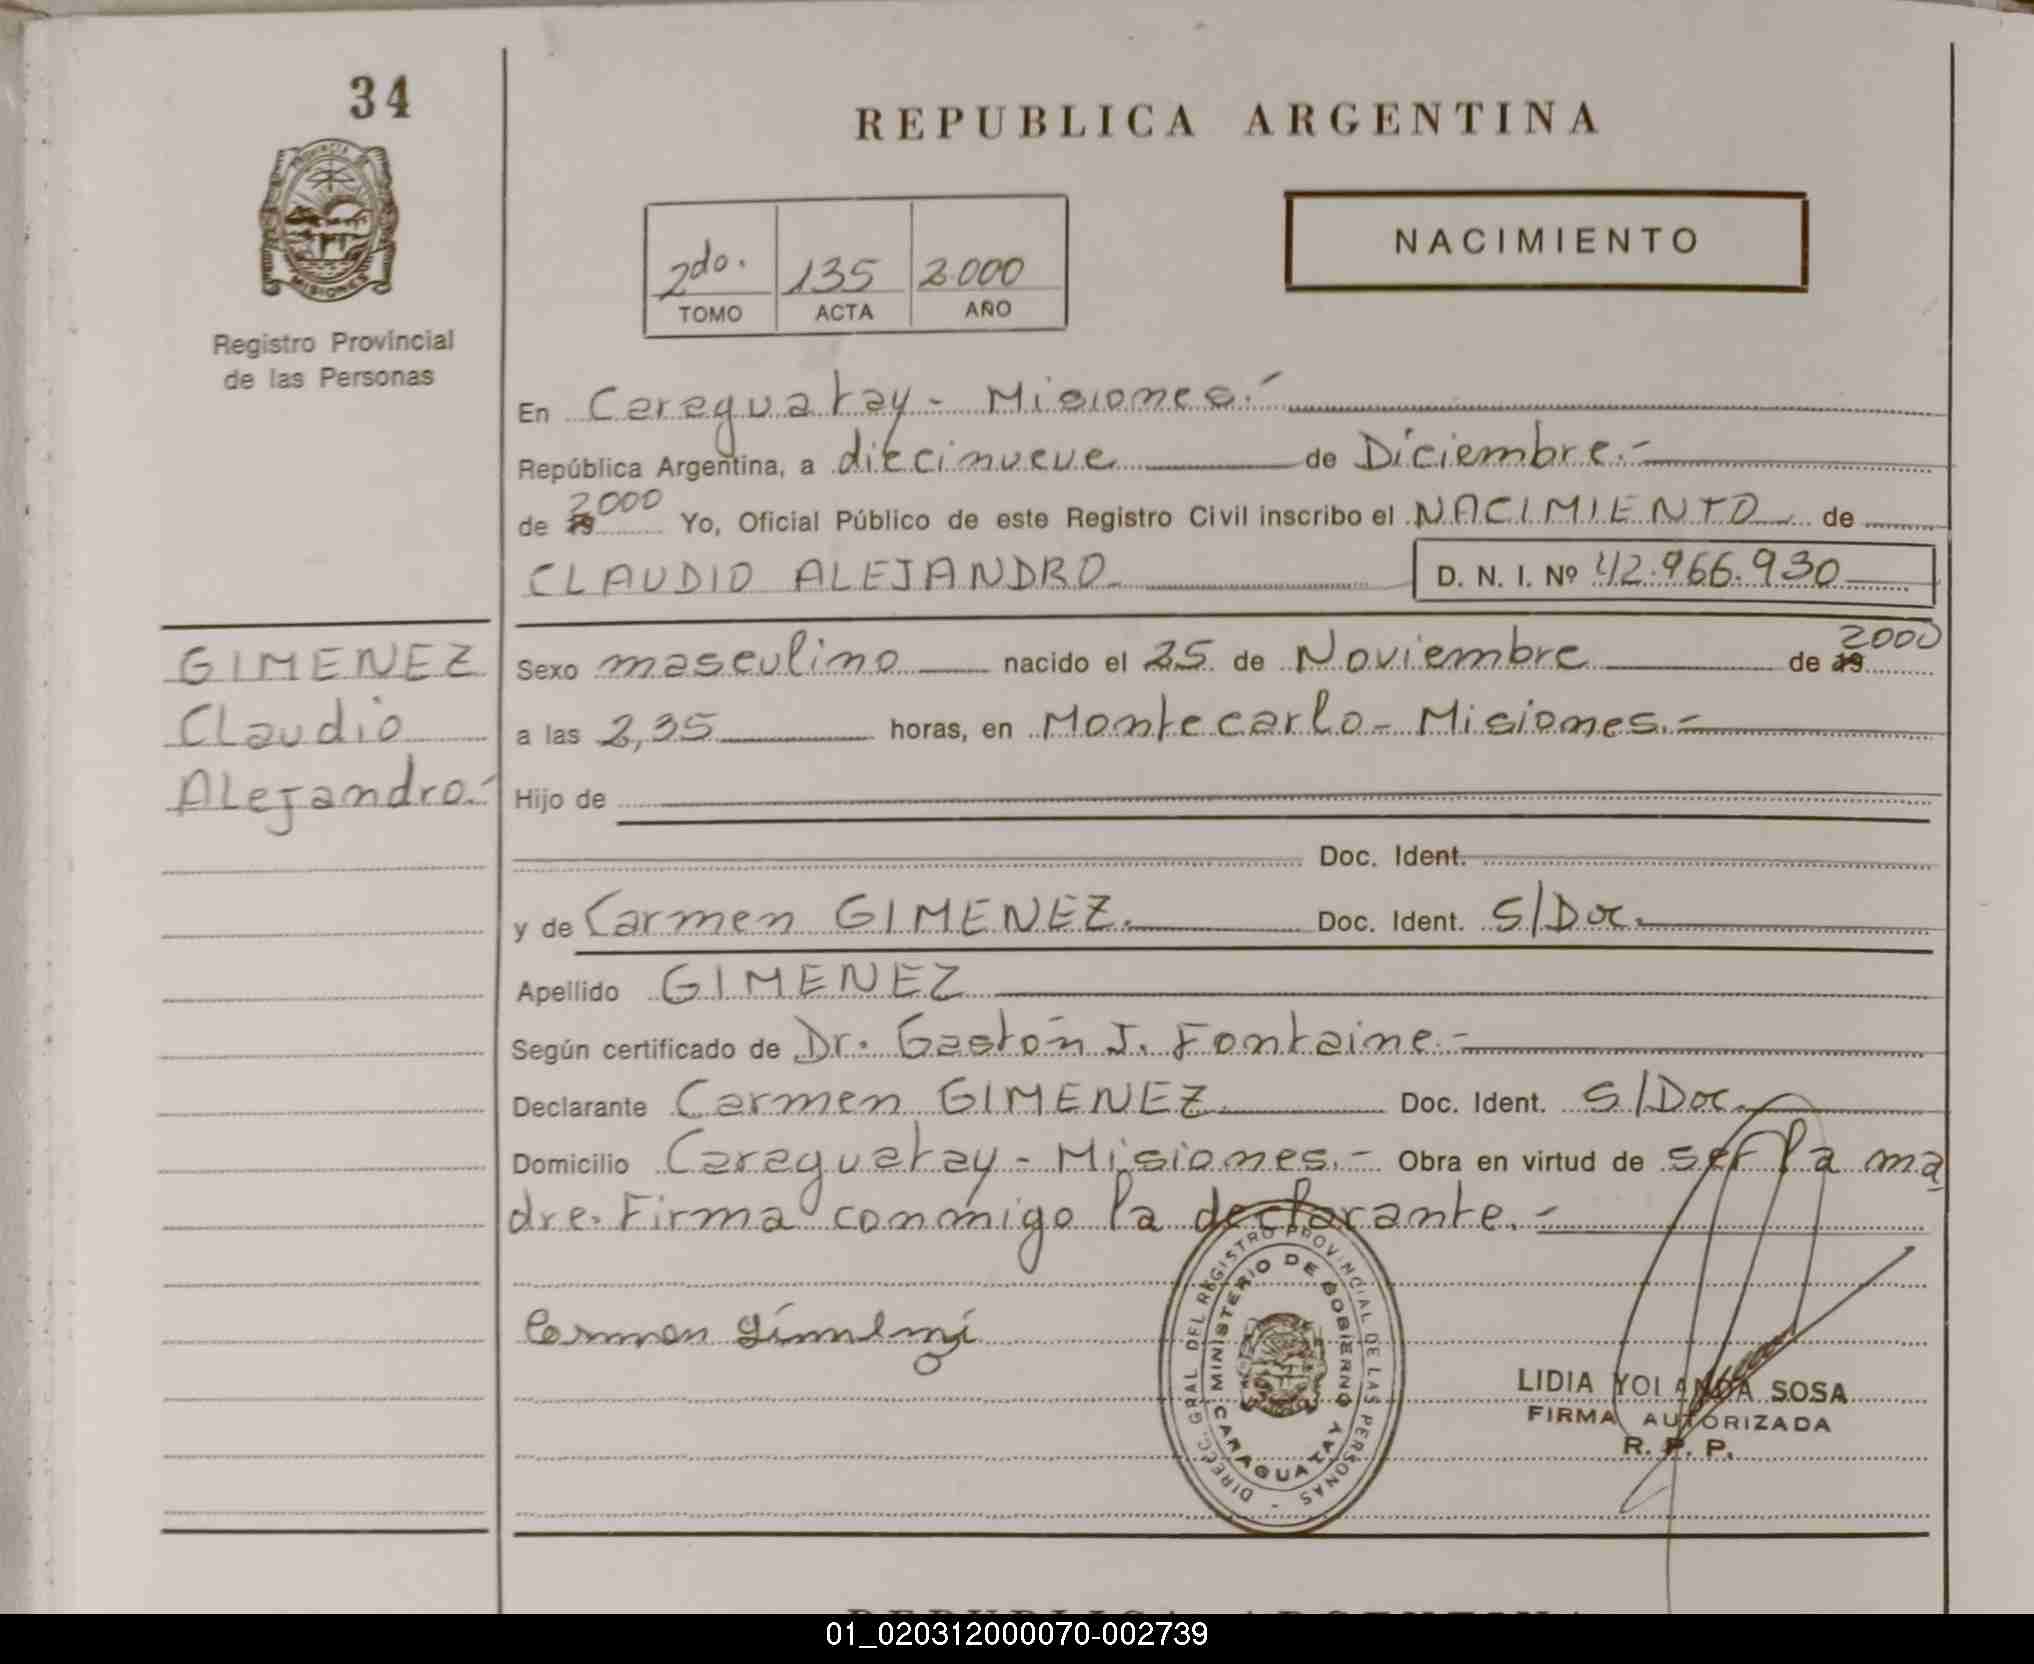 34
PROVINCIA DE
MISIONES
Registro Provincial
de las Personas
REPUBLICA ARGENTINA
2do. 135 2.000
TOMO ACTA AÑO
NACIMIENTO
En Caraguatay - Misiones.-
República Argentina, a diecinueve de Diciembre.-
de 19 2000 Yo, Oficial Público de este Registro Civil inscribo el NACIMIENTO de
CLAUDIO ALEJANDRO D. N. I. Nº 42.966.930
GIMENEZ
Claudio
Alejandro.-
Sexo masculino nacido el 25 de Noviembre de 19 2000
a las 2,35 horas, en Montecarlo - Misiones.-
Hijo de
Doc. Ident.
y de Carmen GIMENEZ. Doc. Ident. S/Doc.
Apellido GIMENEZ
Según certificado de Dr. Gastón J. Fontaine.-
Declarante Carmen GIMENEZ Doc. Ident. S/Doc.
Domicilio Caraguatay - Misiones.- Obra en virtud de ser la ma
dre. Firma conmigo la declarante.-
Carmen Gimenez
DIRECC. GRAL DEL REGISTRO PROVINCIAL DE LAS PERSONAS -
MINISTERIO DE GOBIERNO
CARAGUATAY
LIDIA YOLANDA SOSA
FIRMA AUTORIZADA
R. P. P.
REPUBLICA ARGENTINA
01_020312000070-002739